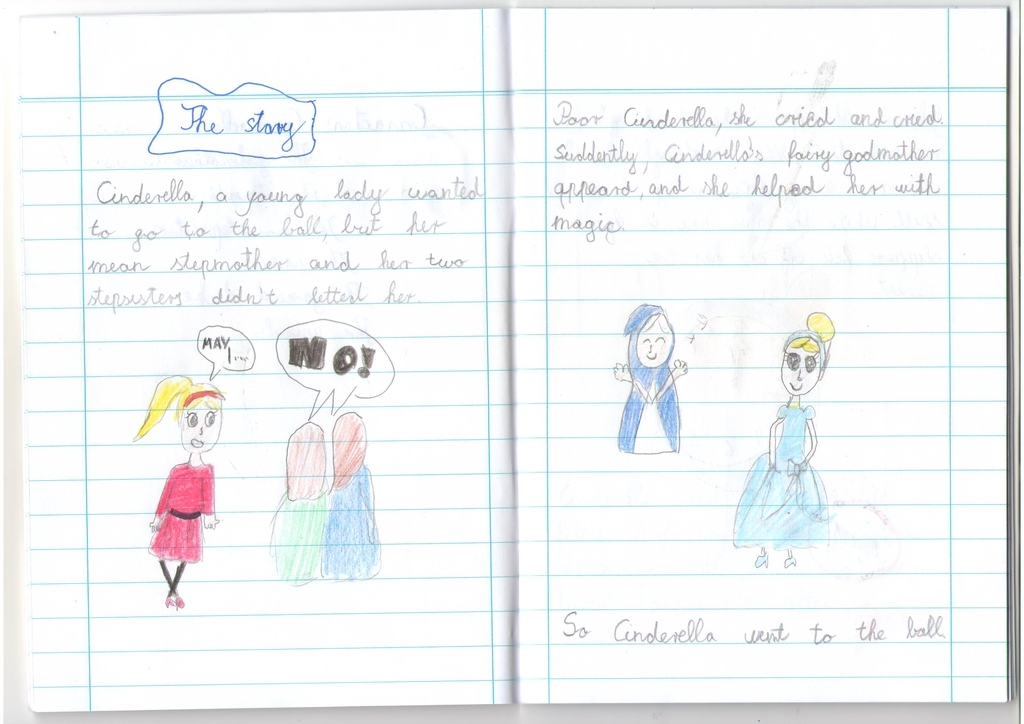 The story
Cinderella, a young lady wanted
to go to the ball, but her
mean stepmother and her two
stepsisters didn't letted her.
MAY
I...
NO!
Poor Cinderella, she cried and cried.
Suddently, Cinderella's fairy godmother
appeard, and she helped her with
magic.
So Cinderella went to the ball.